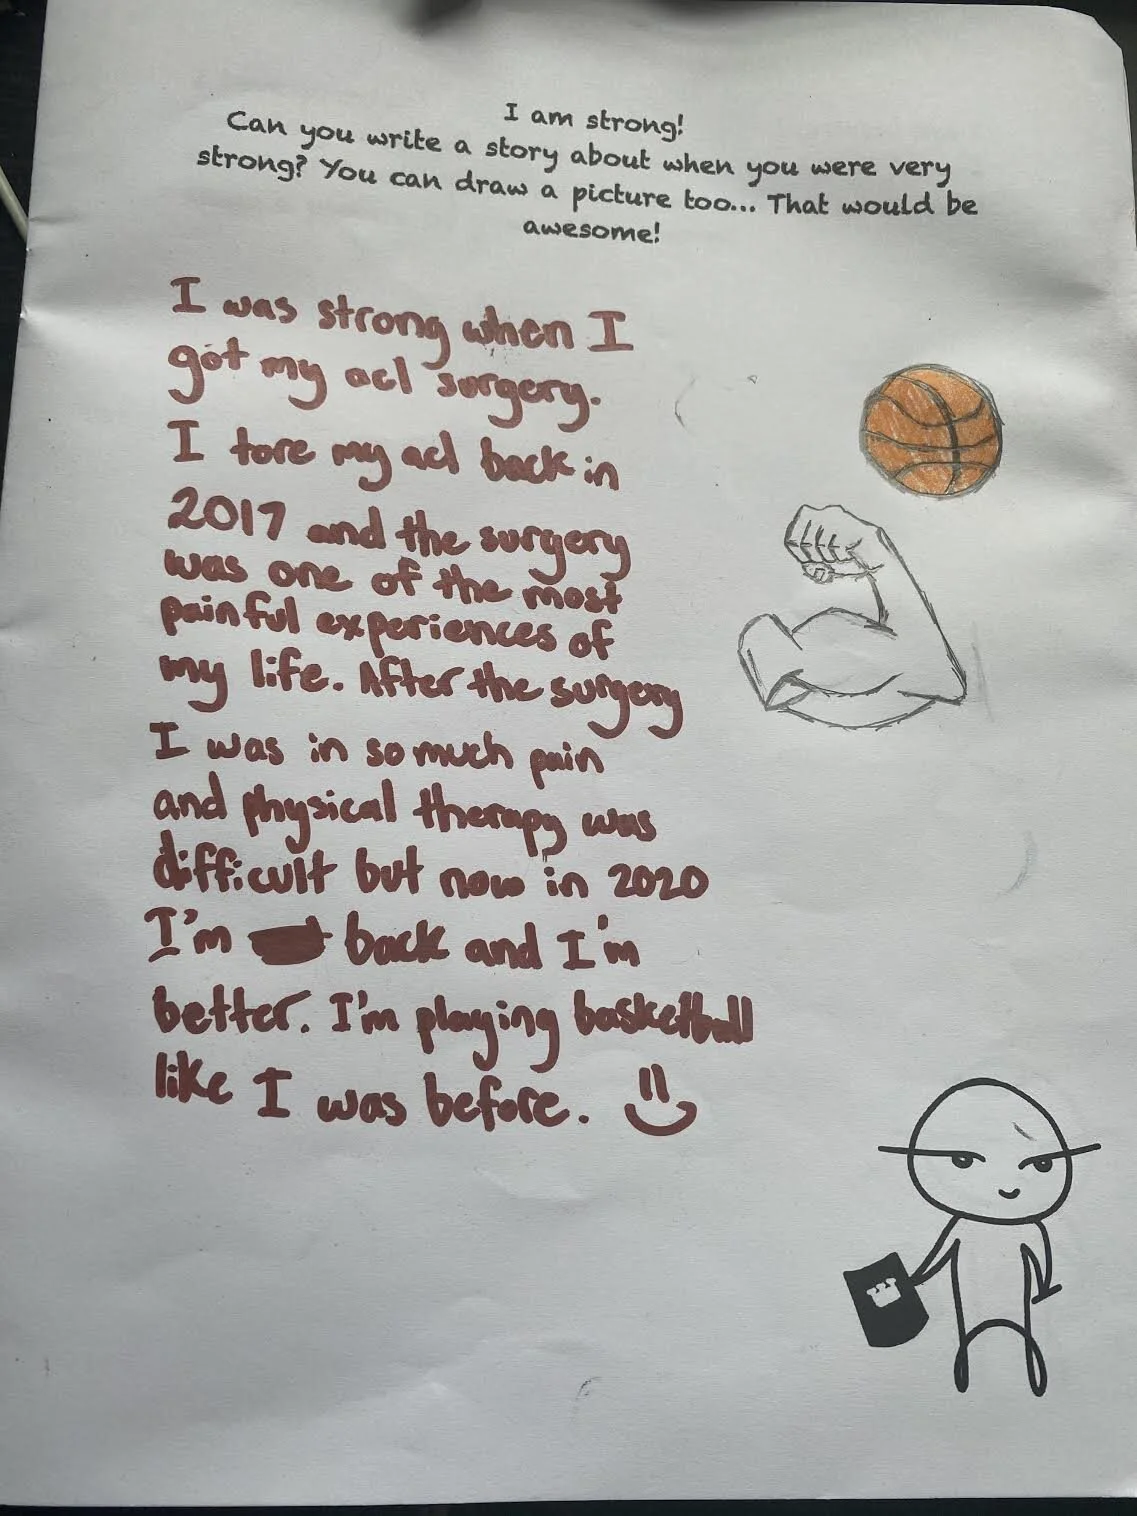 I am strong!
Can you write a story about when you were very
strong? You can draw a picture too... That would be
awesome!
I was strong when I
got my acl surgery.
I tore my acl back in
2017 and the surgery
was one of the most
painful experiences of
my life. After the surgery
I was in so much pain
and physical therapy was
difficult but now in 2020
I'm back and I'm
better. I'm playing basketball
like I was before.